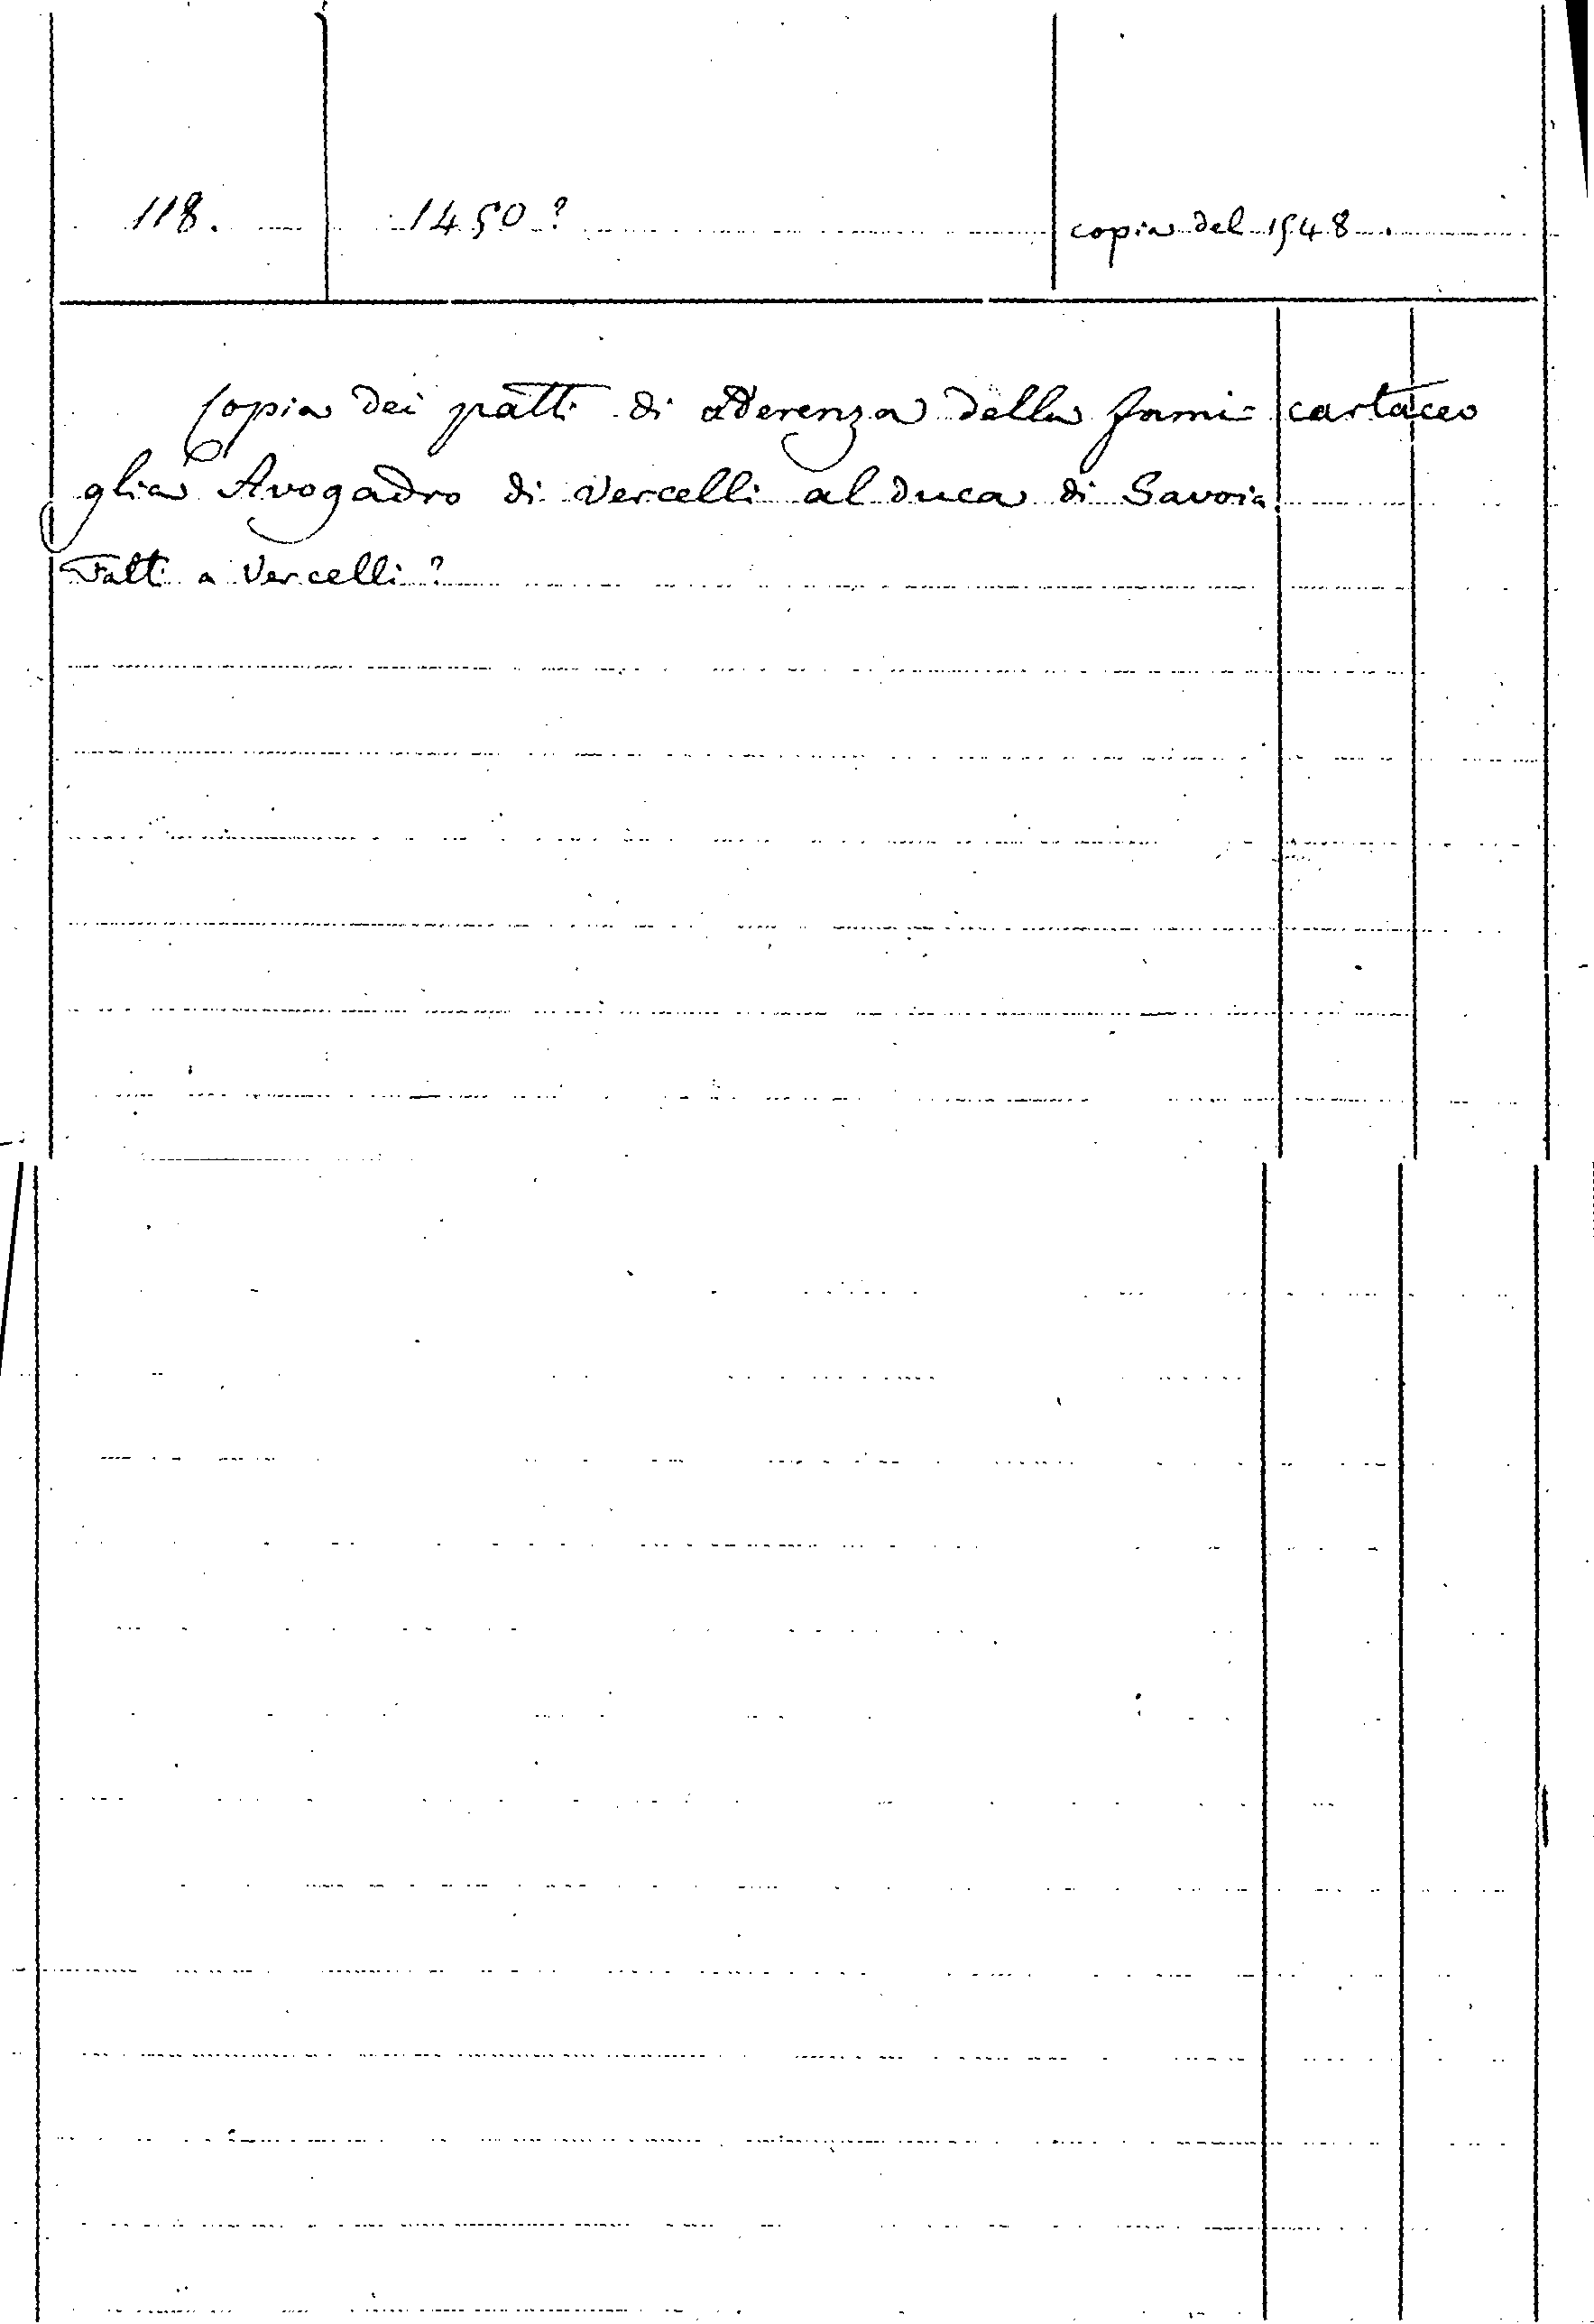 118. 1450? copia del 1548.
Copia dei patti di aderenza della fami= cartaceo
glia Avogadro di Vercelli al duca di Savoia.
Fatti a Vercelli?